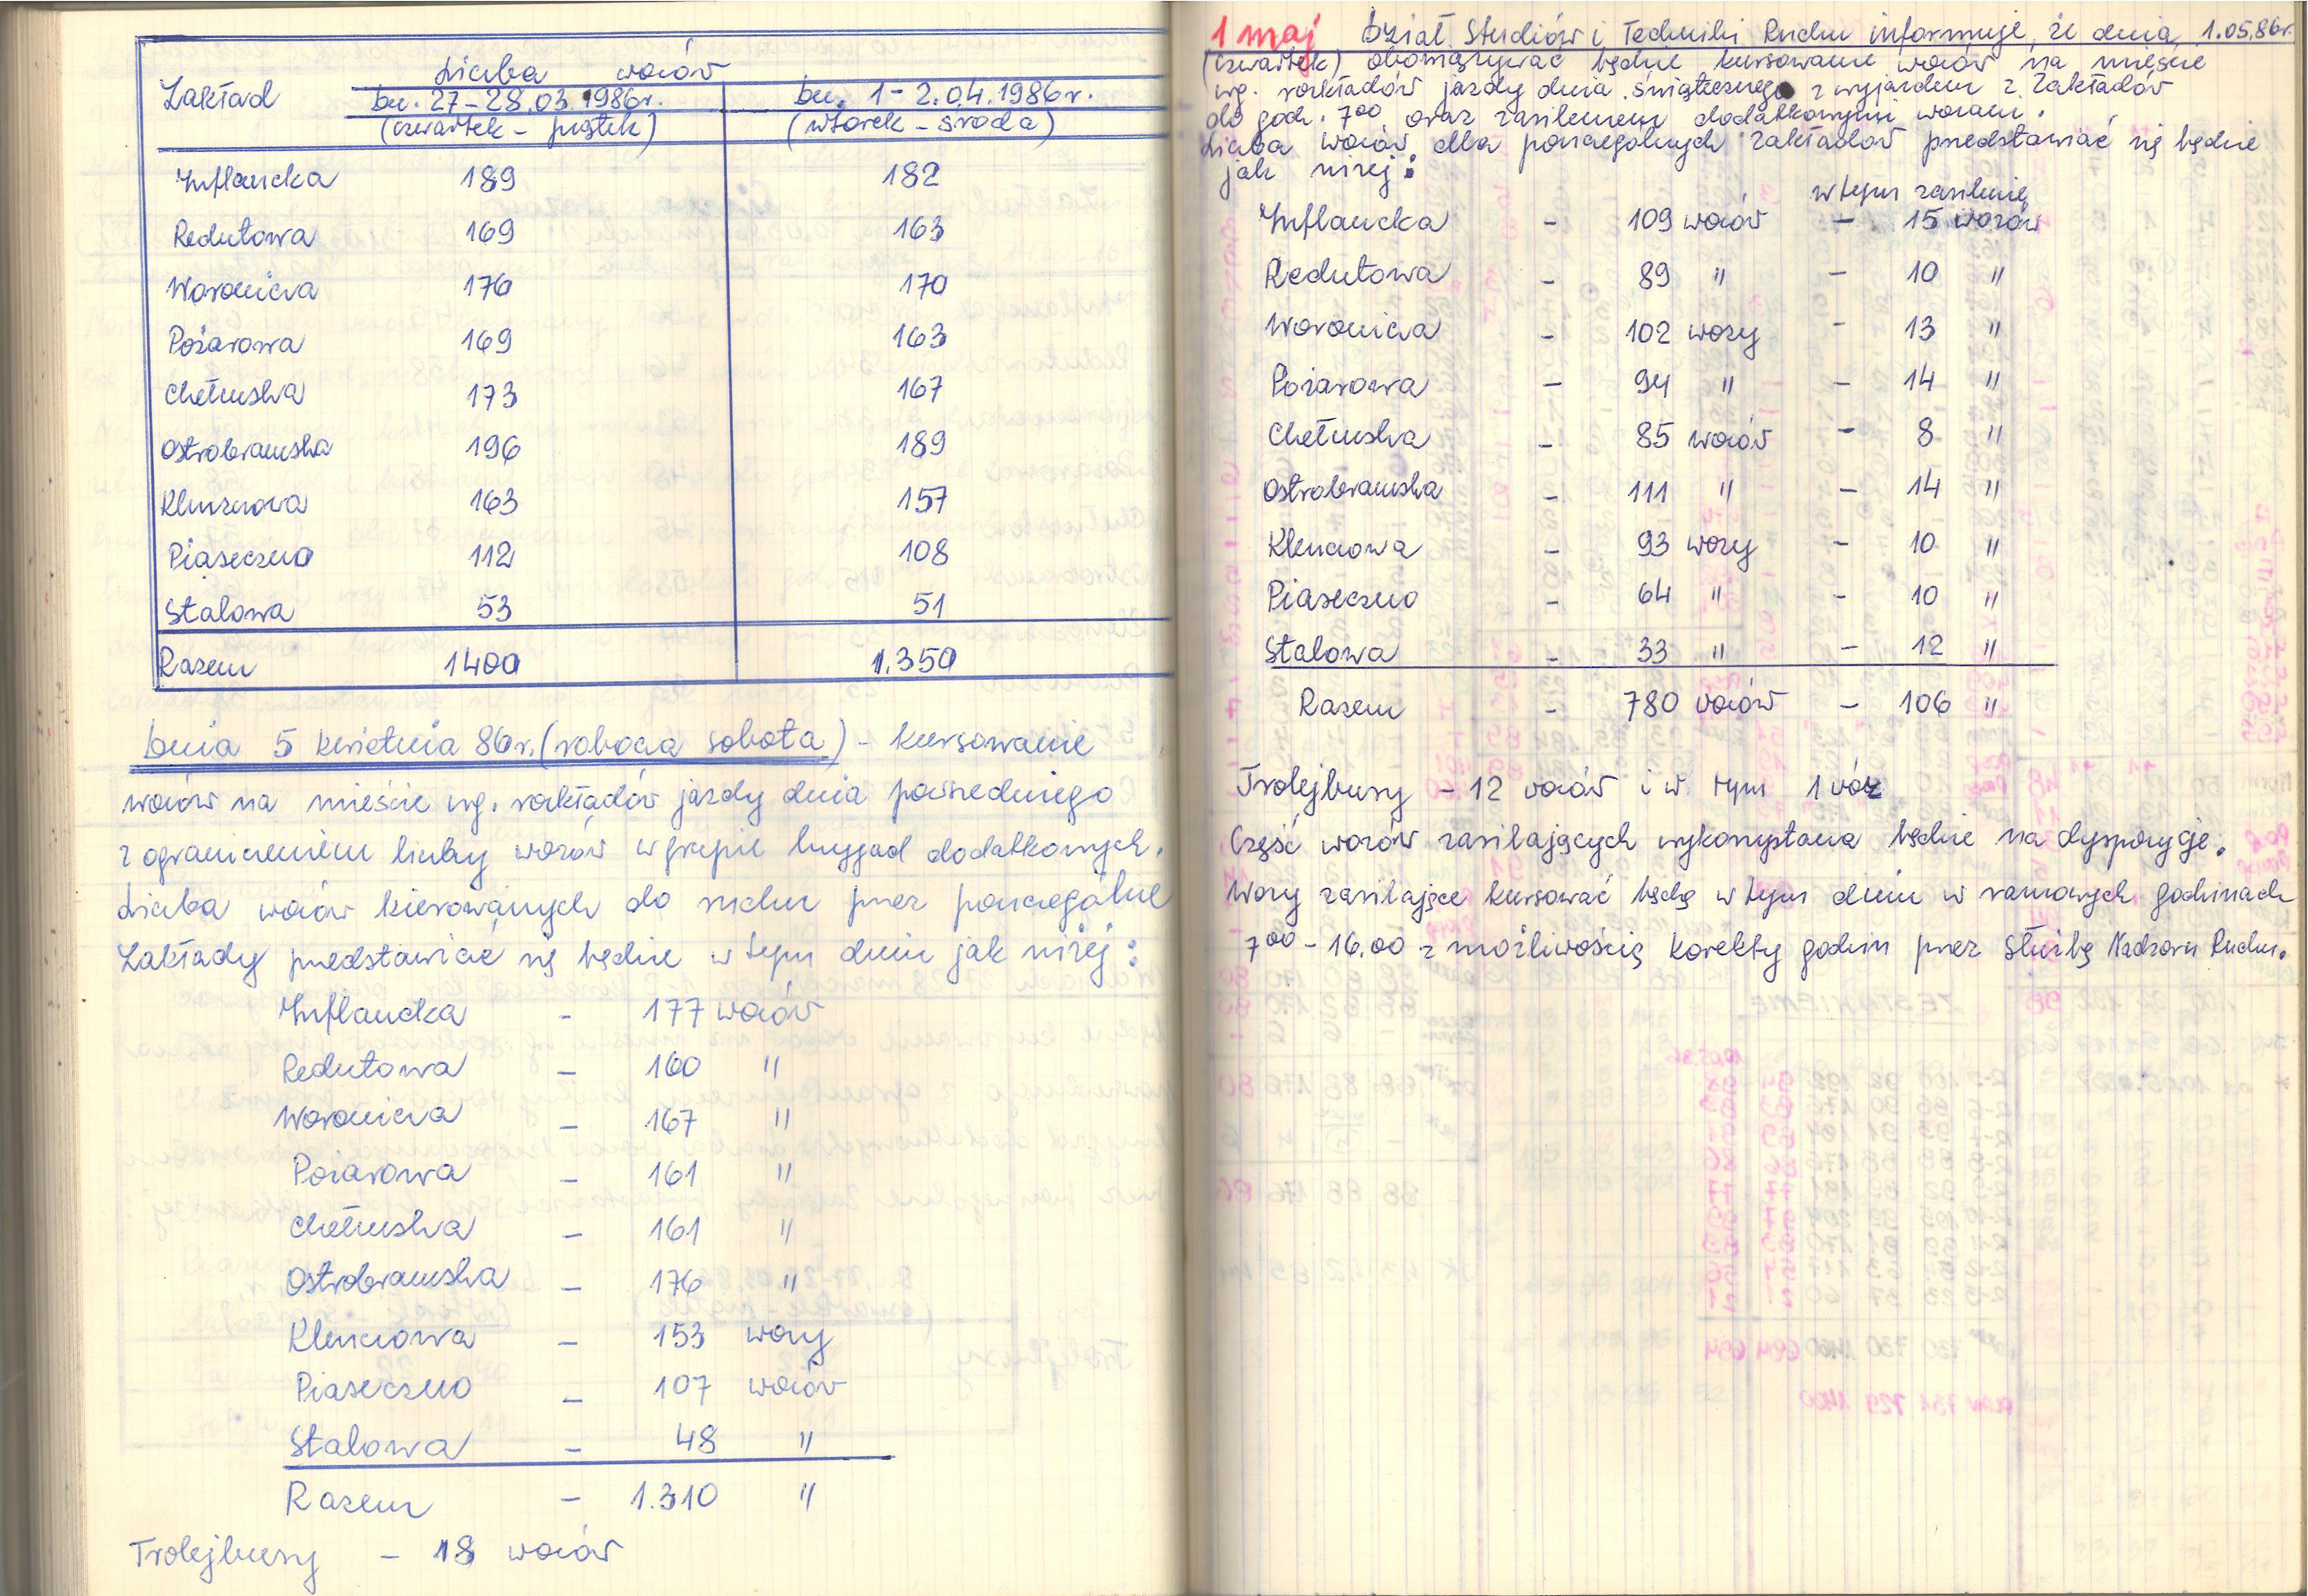 Zakład
Liczba wozów
dn. 27-28.03.1986r.
dn. 1-2.04.1986r.
(czwartek - piątek)
(wtorek - środa)
Inflancka 189 182
Redutowa 169 163
Woronicza 176 170
Pożarowa 169 163
Chełmska 173 167
Ostrobramska 196 189
Kleszczowa 163 157
Piaseczno 112 108
Stalowa 53 51
Razem 1400 1.350
Dnia 5 kwietnia 86r. (robocza sobota) - kursowanie
wozów na mieście wg. rozkładów jazdy dnia powszedniego
z ograniczeniem liczby wozów w grupie brygad dodatkowych.
Liczba wozów kierowanych do ruchu przez poszczególne
Zakłady przedstawiać się będzie w tym dniu jak niżej:
Inflancka - 177 wozów
Redutowa - 160 "
Woronicza - 167 "
Pożarowa - 161 "
Chełmska - 161 "
Ostrobramska - 176 "
Kleszczowa - 153 wozy
Piaseczno - 107 wozów
Stalowa - 48 "
Razem - 1.310 "
Trolejbusy - 18 wozów
1 maj Dział Studiów i Techniki Ruchu informuje, że dnia 1.05.86r.
(czwartek) obowiązywać będzie kursowanie wozów na mieście
wg. rozkładów jazdy dnia świątecznego z wyjazdem z Zakładów
do godz. 7⁰⁰ oraz zasileniem dodatkowymi wozami.
Liczba wozów dla poszczególnych zakładów przedstawiać się będzie
jak niżej:
w tym zasilenie
Inflancka - 109 wozów - 15 wozów
Redutowa - 89 " - 10 "
Woronicza - 102 wozy - 13 "
Pożarowa - 94 " - 14 "
Chełmska - 85 wozów - 8 "
Ostrobramska - 111 " - 14 "
Kleszczowa - 93 wozy - 10 "
Piaseczno - 64 " - 10 "
Stalowa - 33 " - 12 "
Razem - 780 wozów - 106 "
Trolejbusy - 12 wozów i w tym 1 wóz
Część wozów zasilających wykorzystana będzie na dyspozycje.
Wozy zasilające kursować będą w tym dniu w ramowych godzinach
7⁰⁰ - 16.00 z możliwością korekty godzin przez Służbę Nadzoru Ruchu.